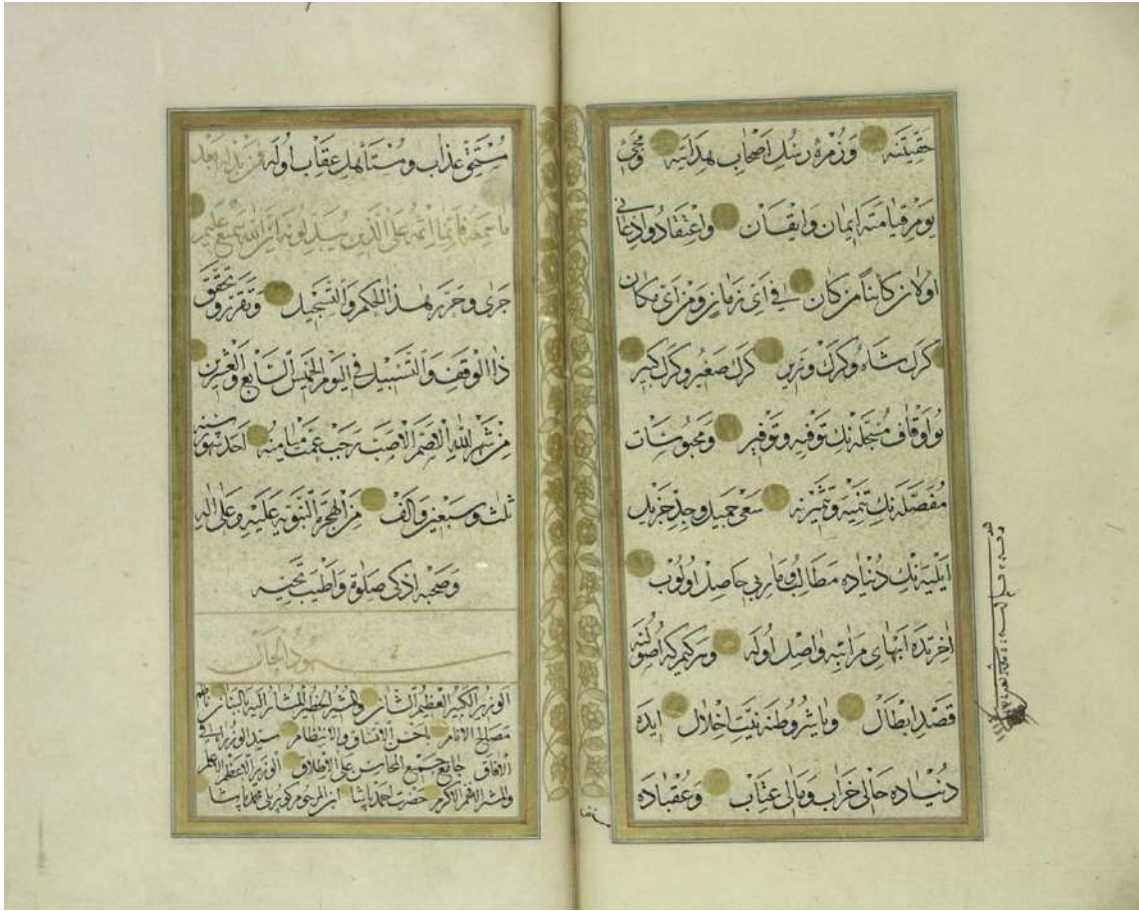 حقيقتنه وزمرهٔ رسل اصحاب هدايته ومجئ
يوم قيامته ايمان وايقان واعتقاد واذعانى
اولان كائنا من كان فى اى زمان ومن اى مكان
كرك شاه وكرك وزير كرك صغير وكرك كبير
بو اوقاف مسجله نك توفيه وتوفير ومحبوسات
مفصله نك تنميه وتثميرنه سعى حميد وجد جزيل
ايليه نك دنياده مطالب ومآربى حاصل اولوب
آخرتده ابهاى مراتبه واصل اوله وهر كيم كه اصولنه
قصد ابطال وياشروطنه نيت اخلال ايده
دنياده حالى خراب ومآلى عتاب وعقباده
مستحق عذاب ومستأهل عقاب اوله فمن بدله بعد
ما سمعه فانما اثمه على الذين يبدلونه ان الله سميع عليم
جرى وحرر لهذا الحكم والتسجيل وتقرر وتحقق
ذا الوقف والتسبيل فى اليوم الخميس السابع والعشرين
من شهر الله الاصم الاصب رجب عمت ميامنه احد شهور سنه
ثلث وسبعين والف من الهجرة النبويه عليه وعلى اله
وصحبه ازكى صلوة واطيب تحيه
شهود الحال
الوزير الكبير العظيم الشان والمشير الخطير المشار اليه بالبنان ناظم
مصالح الانام باحسن الاتساق والانتظام سيد الوزراء فى
الافاق جامع جميع المحاسن على الاطلاق الوزير الاعظم الاعلم
والمشير الافخم الاكرم حضرت احمد پاشا ابن المرحوم كوپريلى محمد پاشا